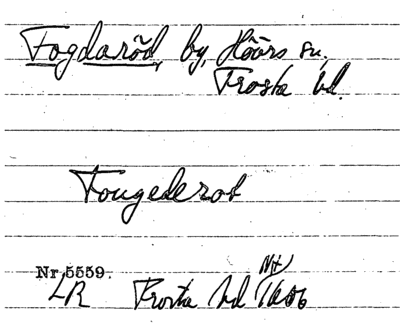 Fogdaröd, by, Höörs sn.
Frosta hd.
Fougederod
Nr 5559.
LR Frosta hd 1606